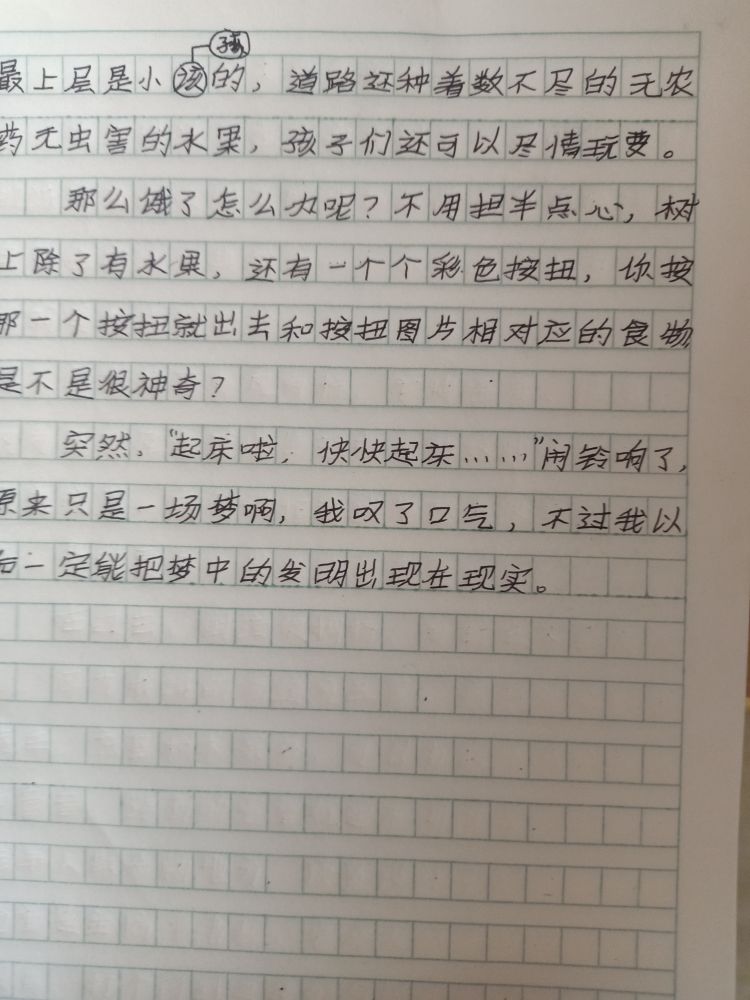 孩
最上层是小该的，道路还种着数不尽的无农
药无虫害的水果，孩子们还可以尽情玩耍。
那么饿了怎么办呢？不用担半点心，树
上除了有水果，还有一个个彩色按扭，你按
那一个按扭就出去和按扭图片相对应的食物
是不是很神奇？
突然，“起床啦，快快起床……”闹铃响了，
原来只是一场梦啊，我叹了口气，不过我以
后一定能把梦中的发明出现在现实。